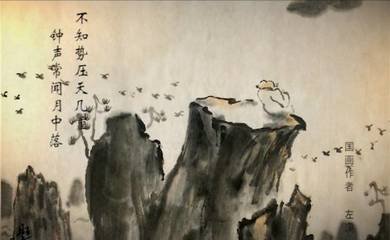 不知势压天几重
钟声常闻月中落
国画作者 左